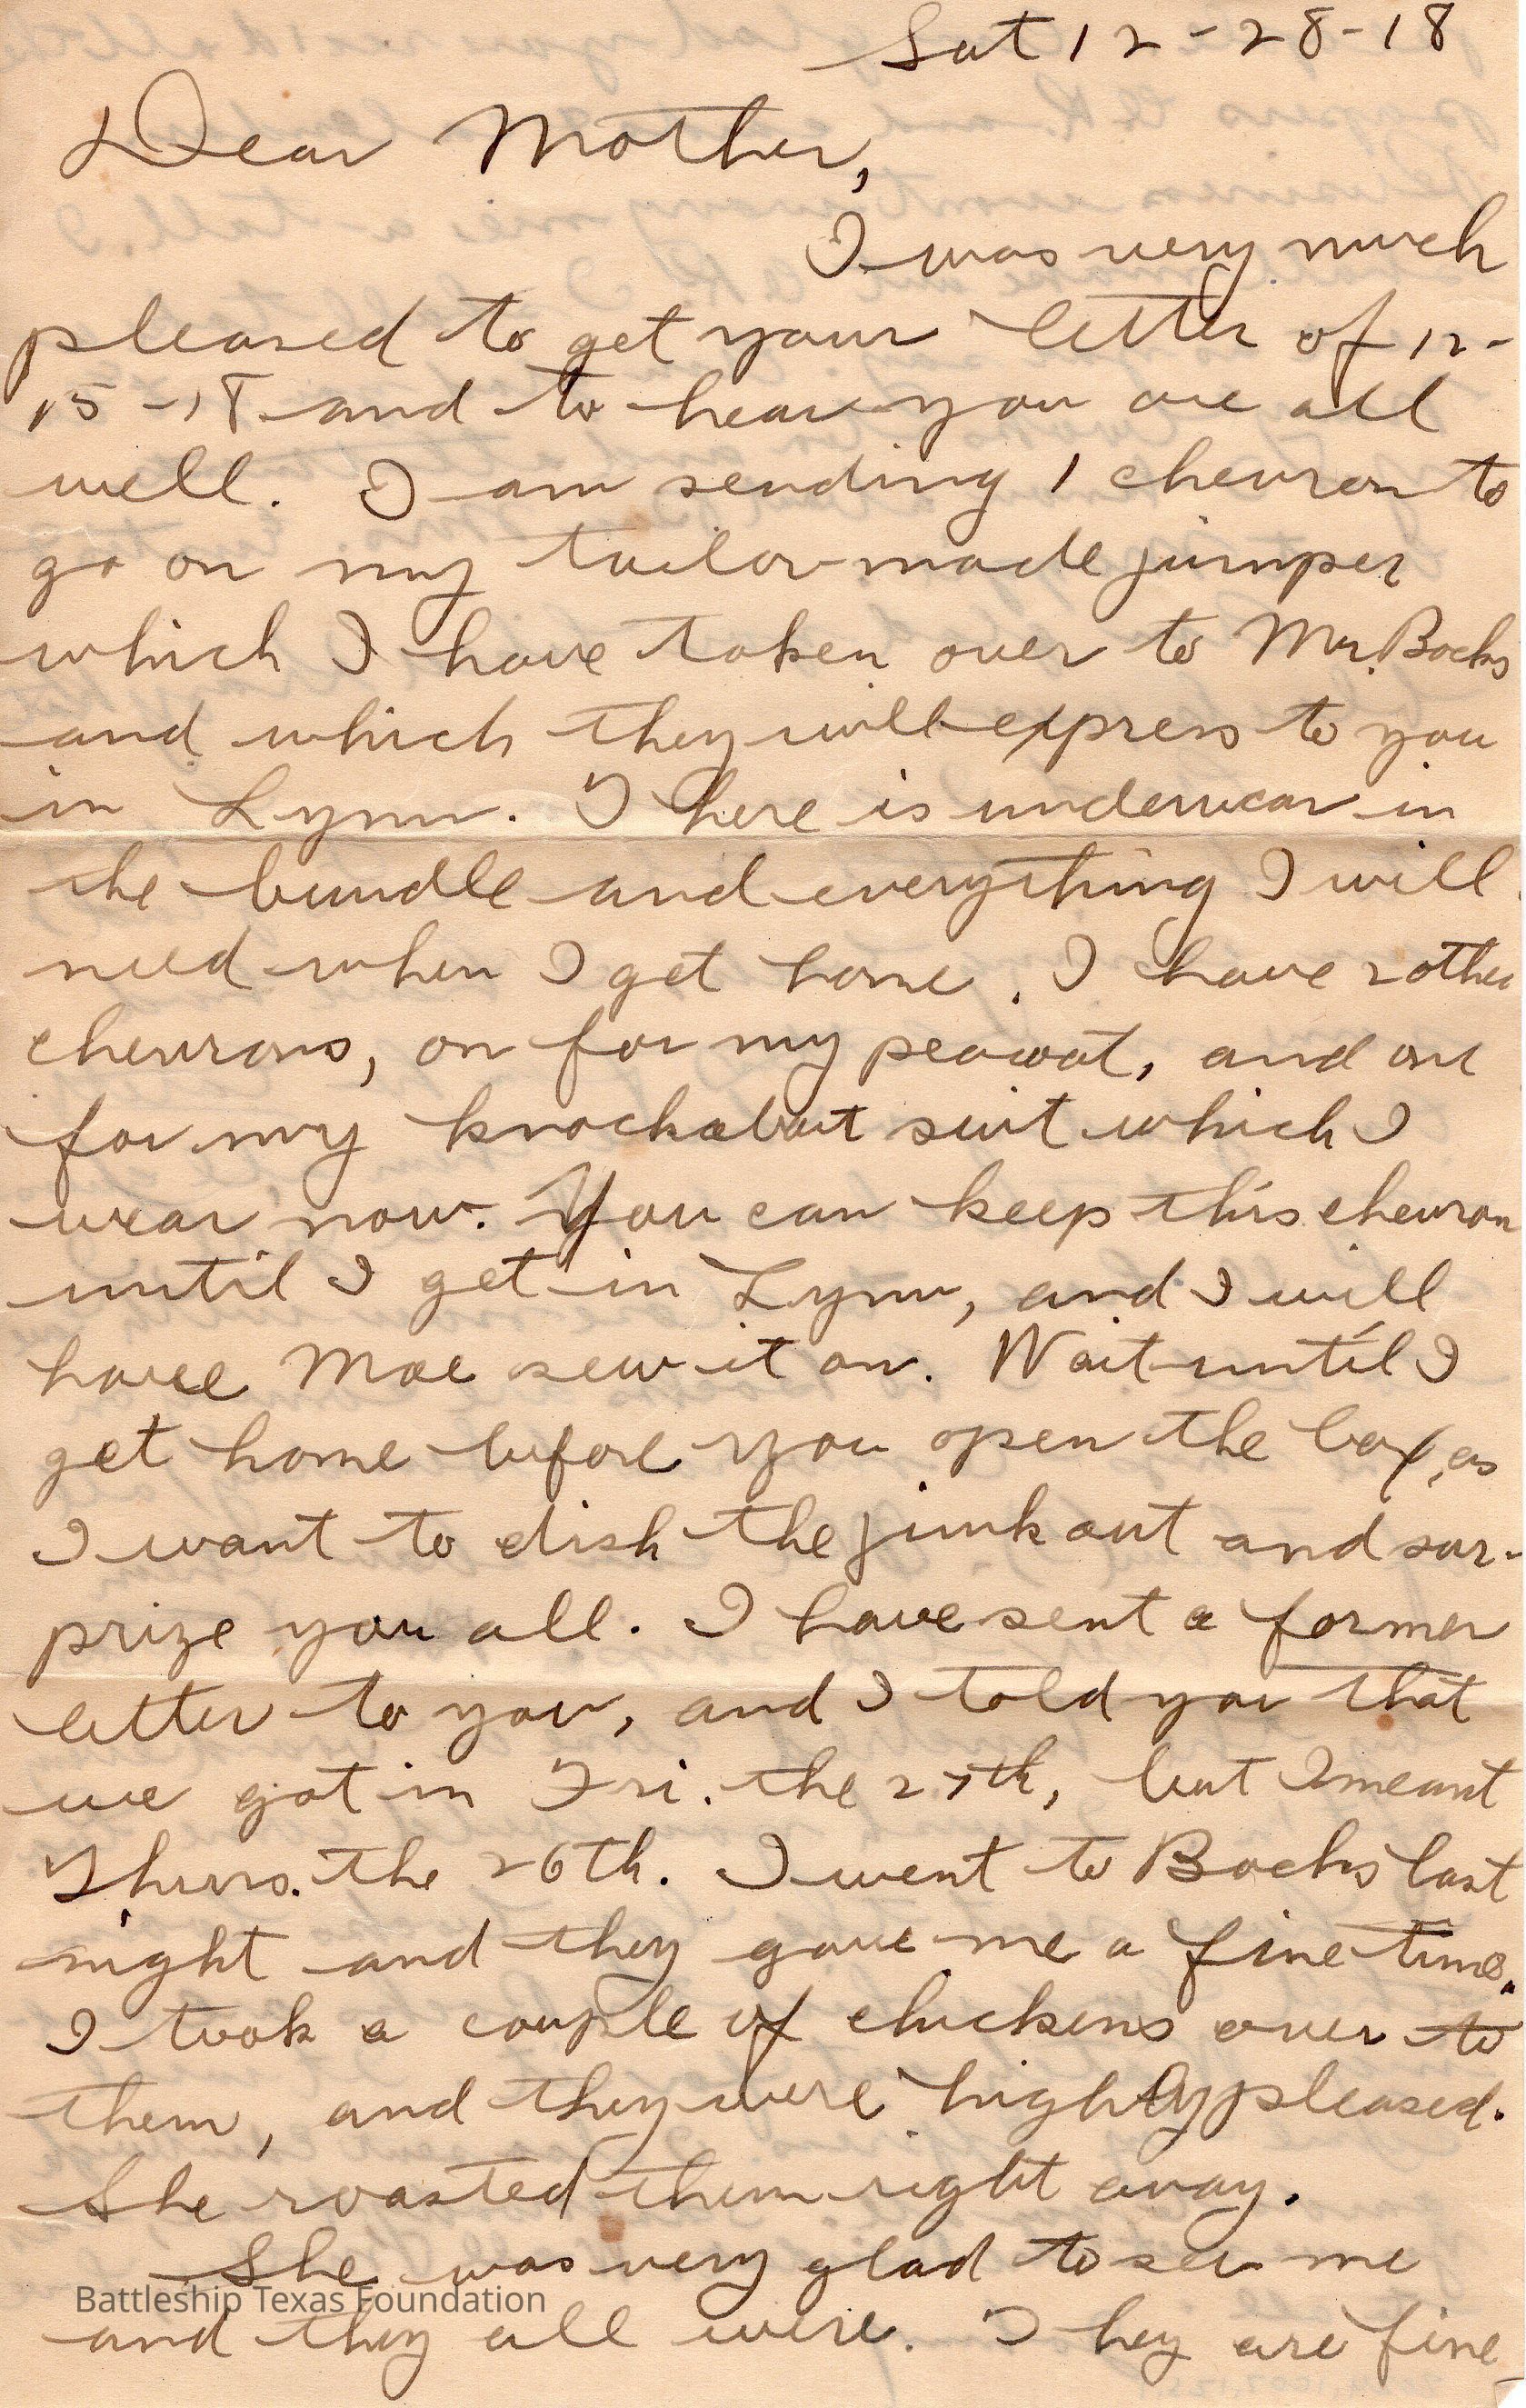 Sat 12-28-18
Dear Mother,
I was very much
pleased to get your letter of 12-
15-18 and to hear you are all
well. I am sending 1 chevron to
go on my tailor-made jumper
which I have taken over to Mr. Bocks
and which they will express to you
in Lynn. There is underwear in
the bundle and everything I will
need when I get home. I have 2 other
chevrons, on for my peacoat, and one
for my knockabout suit which I
wear now. You can keep this chevron
until I get in Lynn, and I will
have Moe sew it on. Wait until I
get home before you open the box, as
I want to dish the junk out and sur-
prize you all. I have sent a former
letter to you, and I told you that
we got in Fri. the 27th, but I meant
Thurs. the 26th. I went to Bocks last
night and they gave me a fine time.
I took a couple of chickens over to
them, and they were highly pleased.
She roasted them right away.
She was very glad to see me
Battleship Texas Foundation
and they all were. They are fine